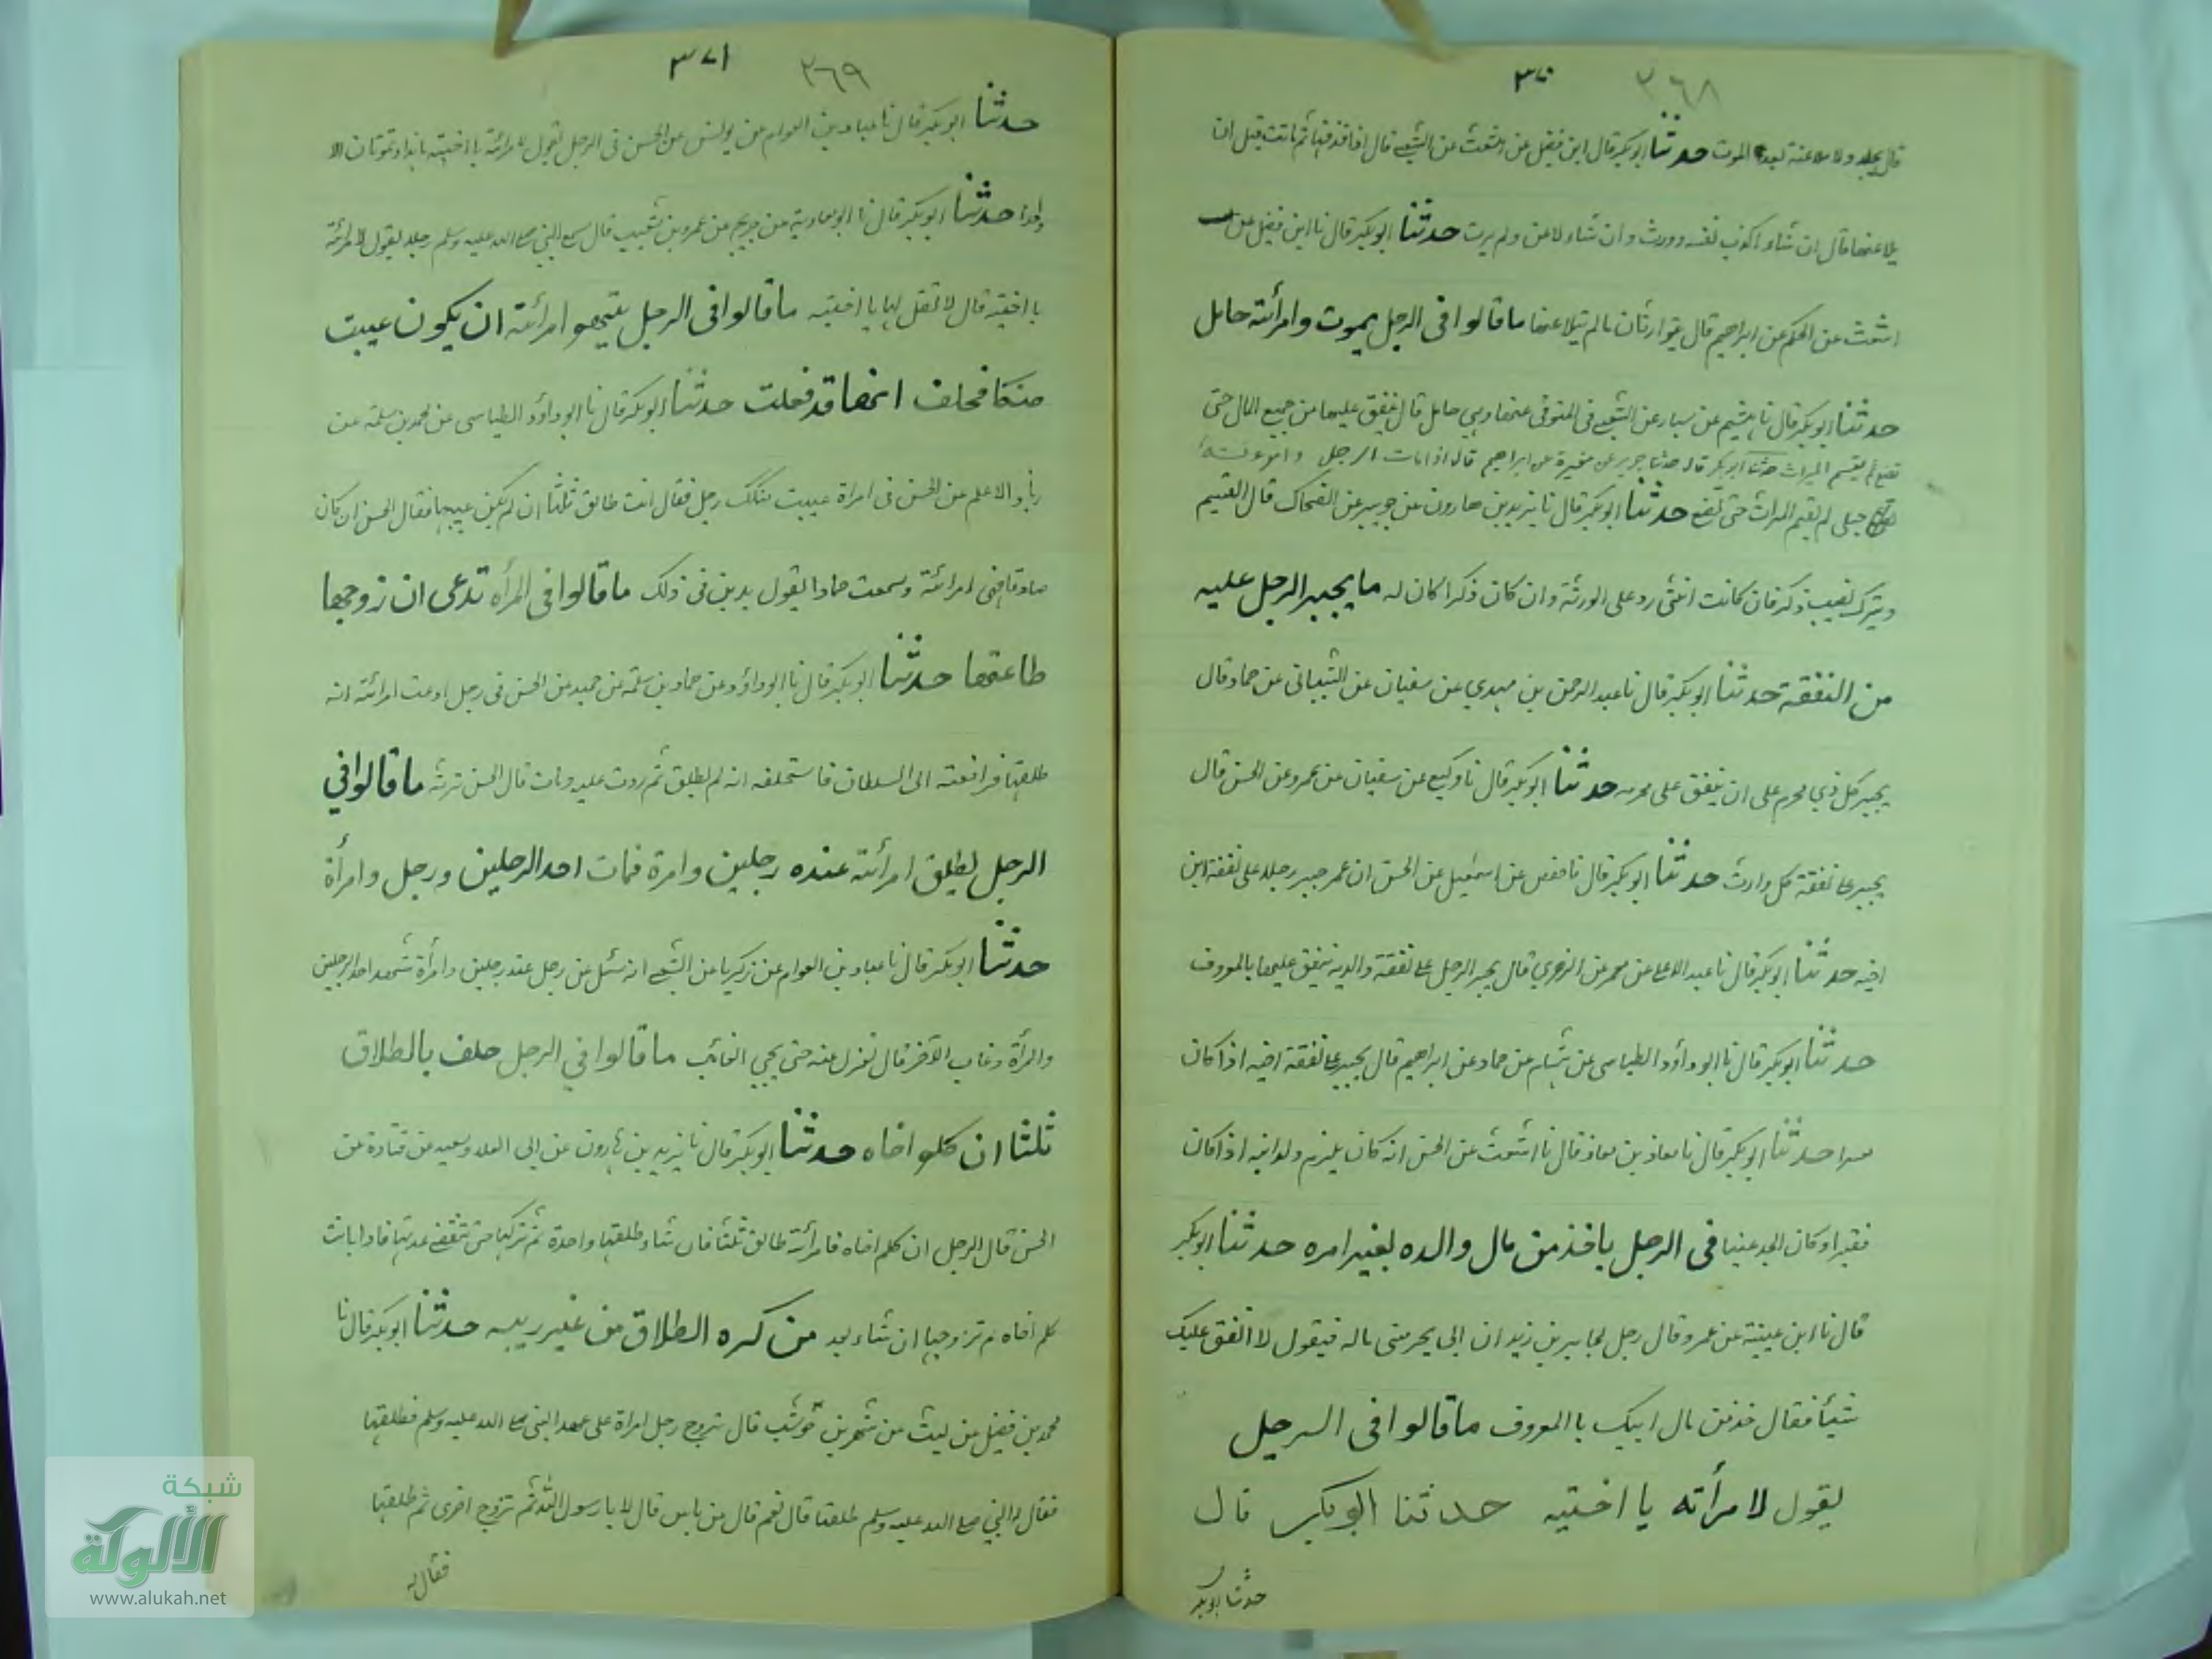 ٣٧٠ ٣٦٨
قال يجلد ولا ملاعنة بعد الموت حدثنا ابو بكر قال ابن فضيل عن اشعث عن الشعبي قال اذا قذفها ثم ماتت قبل ان
يلاعنها قال ان شاء اكذب نفسه وورث وان شاء لاعن ولم يرث حدثنا ابو بكر قال نا ابن فضيل عن
اشعث عن الحكم عن ابراهيم قال يتوارثان مالم يتلاعنا ما قالوا في الرجل يموت وامرأته حامل
حدثنا ابو بكر قال نا هشيم عن سيار عن الشعبي في المتوفى عنها وهي حامل قال ينفق عليها من جميع المال حتى
تضع ثم يقسم الميراث حدثنا ابو بكر قال حدثنا جرير عن مغيرة عن ابراهيم قال اذا مات الرجل وامرأته
حبلى لم يقسم الميراث حتى تضع حدثنا ابو بكر قال نا يزيد بن هارون عن جويبر عن الضحاك قال القسيم
ويترك نصيب ذكر فان كانت انثى رد على الورثة وان كان ذكرا كان له ما يجبر الرجل عليه
من النفقة حدثنا ابو بكر قال نا عبد الرحمن بن مهدي عن سفيان عن الشيباني عن حماد قال
يجبر كل ذي محرم على ان ينفق على محرمه حدثنا ابو بكر قال نا وكيع عن سفيان عن عمرو عن الحسن قال
يجبر على نفقة كل وارث حدثنا ابو بكر قال نا حفص عن اسمعيل عن الحسن ان عمر جبر رجلا على نفقة ابن
اخيه حدثنا ابو بكر قال نا عبد الاعلى عن معمر عن الزهري قال يجبر الرجل على نفقة والديه ينفق عليهما بالمعروف
حدثنا ابو بكر قال نا ابو داؤد الطيالسي عن هشام عن حماد عن ابراهيم قال يجبر على نفقة اخيه اذا كان
معسرا حدثنا ابو بكر قال نا معاذ بن معاذ قال نا اشعث عن الحسن انه كان يلزم ولد ابنه اذا كان
فقيرا وكان الجد غنيا في الرجل ياخذ من مال والده بغير امره حدثنا ابو بكر
قال نا ابن عيينة عن عمرو قال رجل لجابر بن زيد ان ابي يحرمني ماله فيقول لا انفق عليك
شيئا فقال خذ من مال ابيك باالمعروف ما قالوا في الرجل
يقول لامرأته يا اخيته حدثنا ابو بكر قال
حدثنا ابو بكر
٣٧١ ٣٦٩
حدثنا ابو بكر قال نا عباد بن العوام عن يونس عن الحسن في الرجل يقول لامرأته يا اخيته
حدثنا ابو بكر قال نا ابو معاوية عن جريج عن عمرو بن شعيب قال سمع النبي صلى الله عليه وسلم رجلا يقول لامرأته
يا اخيته قال لا تقل لها يا اخيته ما قالوا في الرجل يتهم امرأته ان يكون عيبت
فحلف انها قد فعلت حدثنا ابو بكر قال نا ابو داؤد الطيالسي عن محمد بن سلمة عن
زياد الاعلم عن الحسن في امرأة عيبت رجل فقال انت طالق ثلثا ان لم يكن عيبها فقال الحسن ان كان
صادقا فهي امرأته وسمعت حمادا يقول يدين في ذلك ما قالوا في المرأه تدعى ان زوجها
طلقها حدثنا ابو بكر قال نا ابو داؤد عن حماد بن سلمة عن حميد عن الحسن في رجل ادعت امرأته انه
طلقها فرافعته الى السلطان فاستحلفه انه لم يطلق ثم ردت عليه ومات قال الحسن ترثه ما قالوا في
الرجل يطلق امرأته عنده رجلين وامرة فمات احد الرجلين ورجل وامرأة
حدثنا ابو بكر قال نا عباد بن العوام عن زكريا عن الشعبي انه سئل عن رجل عند رجلين وامرأة شهد احد الرجلين
والمرأة وغاب الآخر قال تعزل عنه حتى يجي الغائب ما قالوا في الرجل حلف بالطلاق
ثلثا ان كلم اخاه حدثنا ابو بكر قال نا يزيد بن هارون عن ابي العلاء وسعيد عن قتادة عن
الحسن قال الرجل ان كلم اخاه فامرأته طالق ثلثا فان شاء طلقها واحدة ثم تركها حتى تنقضي عدتها فاذا بانت
كلم اخاه ثم تزوجها ان شاء بعد من كره الطلاق من غير ريبه حدثنا ابو بكر قال نا
محمد بن فضيل عن ليث عن شهر بن حوشب قال تزوج رجل امرأة على عهد النبي صلى الله عليه وسلم فطلقها
فقال له النبي صلى الله عليه وسلم طلقتها قال نعم قال من باس قال لا يا رسول الله ثم تزوج اخرى ثم طلقها
فقال له
شبكة
الألوكة
www.alukah.net